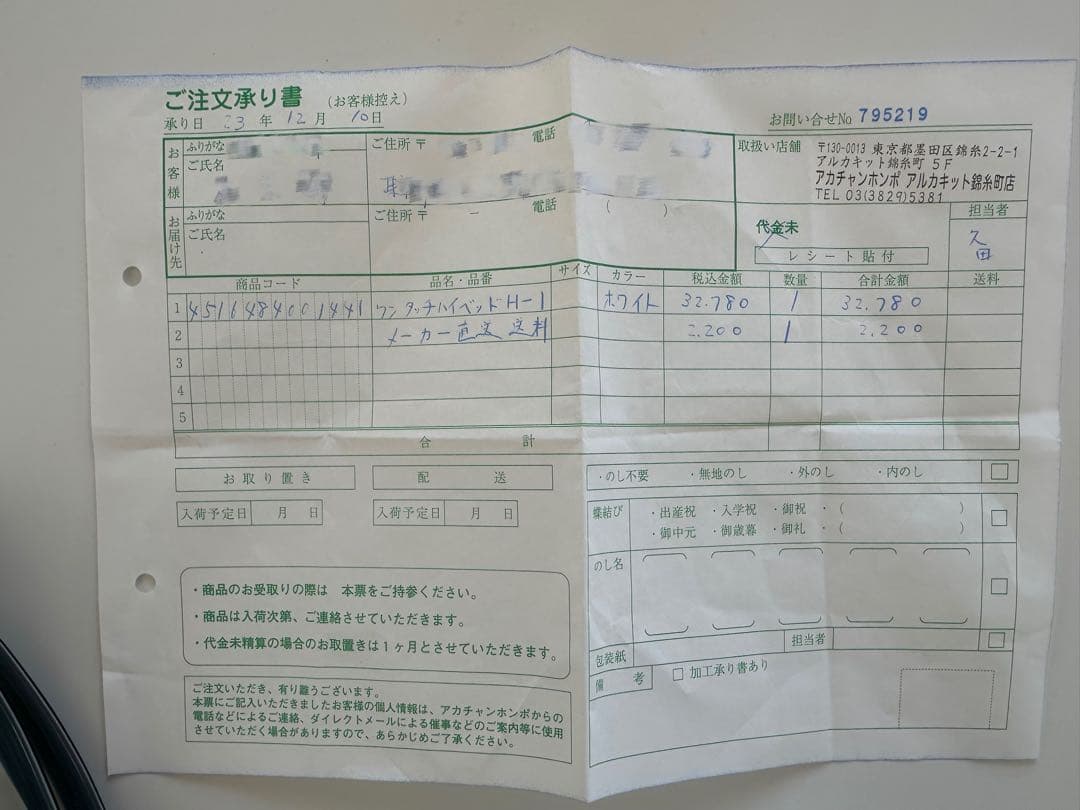 ご注文承り書 (お客様控え)
承り日 23年12月10日
お問い合せNo 795219
お客様
ふりがな
ご氏名
ご住所 〒
電話
取扱い店舗
〒130-0013 東京都墨田区錦糸2-2-1
アルカキット錦糸町 5F
アカチャンホンポ アルカキット錦糸町店
TEL 03(3829)5381
お届け先
ふりがな
ご氏名
ご住所 〒 -
電話 ( )
代金未
レシート貼付
担当者
久田
商品コード 品名・品番 サイズ カラー 税込金額 数量 合計金額 送料
1 4516484001441 ワンタッチハイベッドH-1 ホワイト 32.780 1 32.780
2 メーカー直送 送料 2.200 1 2.200
3
4
5
合計
お取り置き 配送
入荷予定日 月 日 入荷予定日 月 日
・のし不要 ・無地のし ・外のし ・内のし
蝶結び ・出産祝 ・入学祝 ・御祝 ・( )
・御中元 ・御歳暮 ・御礼 ・( )
のし名
包装紙 担当者
備考 □ 加工承り書あり
・商品のお受取りの際は 本票をご持参ください。
・商品は入荷次第、ご連絡させていただきます。
・代金未精算の場合のお取置きは1ヶ月とさせていただきます。
ご注文いただき、有り難うございます。
本票にご記入いただきましたお客様の個人情報は、アカチャンホンポからの
電話などによるご連絡、ダイレクトメールによる催事などのご案内等に使用
させていただく場合がありますので、あらかじめご了承ください。